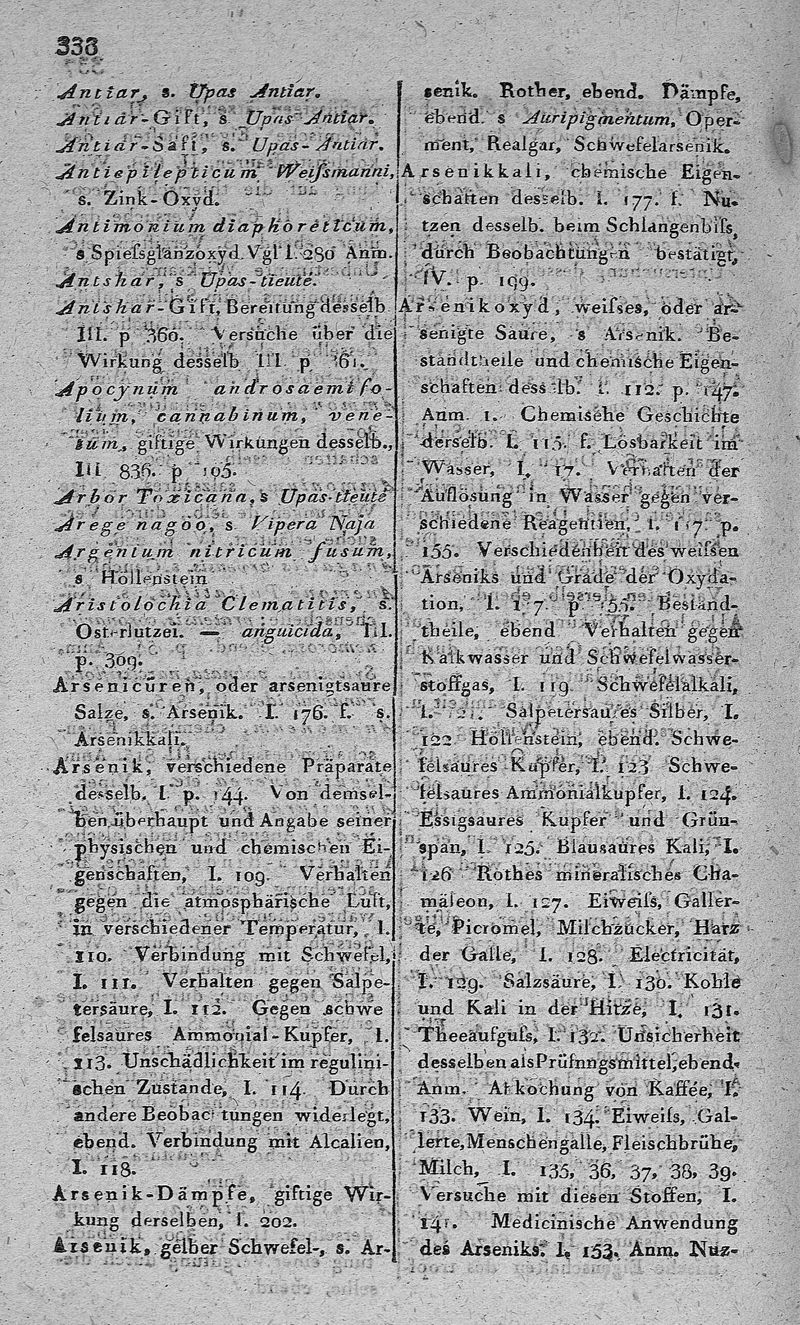 338
Antiar, s. Upas Antiar.
Antiar-Gift, s Upas Antiar.
Antiar-Saft, s. Upas-Antiar.
Antiepilepticum Weiſsmanni,
s. Zink-Oxyd.
Antimonium diaphoreticum,
s Spieſsglanzoxyd. Vgl I. 280 Anm.
Antshar, s Upas-tieuté.
Antshar-Gift, Bereitung desselb
III. p 360. Versuche über die
Wirkung desselb III p 361.
Apocynum androsaemifo-
lium, cannabinum, vene-
tum, giftige Wirkungen desselb.,
III 836. p 195.
Arbor Toxicana, s Upas-tieuté
Arege nagoo, s Vipera Naja
Argentum nitricum fusum,
s Höllenstein
Aristolochia Clematitis, s.
Osterluzei. — anguicida, III.
p. 309.
Arsenicüren, oder arsenigtsaure
Salze, s. Arsenik. I. 176. f. s.
Arsenikkali.
Arsenik, verschiedene Präparate
desselb. I p. 144. Von demsel-
ben überhaupt und Angabe seiner
physischen und chemischen Ei-
genschaften, I. 109. Verhalten
gegen die atmosphärische Luft,
in verschiedener Temperatur, I.
110. Verbindung mit Schwefel,
I. 111. Verhalten gegen Salpe-
tersäure, I. 112. Gegen schwe
felsaures Ammonial-Kupfer, I.
113. Unschädlichkeit im regulini-
schen Zustande, I. 114. Durch
andere Beobachtungen widerlegt,
ebend. Verbindung mit Alcalien,
I. 118.
Arsenik-Dämpfe, giftige Wir-
kung derselben, I. 202.
Arsenik, gelber Schwefel-, s. Ar-
senik. Rother, ebend. Dämpfe,
ebend. s Auripigmentum, Oper-
ment, Realgar, Schwefelarsenik.
Arsenikkali, chemische Eigen-
schaften desselb. I. 177. f. Nu-
tzen desselb. beim Schlangenbiſs,
durch Beobachtungen bestätigt,
IV. p. 199.
Arsenikoxyd, weiſses, oder ar-
senigte Säure, s Arsenik. Be-
standtheile und chemische Eigen-
schaften desselb. I. 112. p. 147.
Anm. 1. Chemische Geschichte
derselb. I. 115. f. Lösbarkeit im
Wasser, I. 117. Verhalten der
Auflösung in Wasser gegen ver-
schiedene Reagentien, I. 117. p.
155. Verschiedenheit des weiſsen
Arseniks und Grade der Oxyda-
tion, I. 117. p 155. Bestand-
theile, ebend Verhalten gegen
Kalkwasser und Schwefelwasser-
stoffgas, I. 119. Schwefelalkali,
I. 121. Salpetersaures Silber, I.
122 Höllenstein, ebend. Schwe-
felsaures Kupfer, I. 123 Schwe-
felsaures Ammonialkupfer, I. 124.
Essigsaures Kupfer und Grün-
span, I. 125. Blausaures Kali, I.
126 Rothes mineralisches Cha-
mäleon, I. 127. Eiweiſs, Galler-
te, Picromel, Milchzucker, Harz
der Galle, I. 128. Electricität,
I. 129. Salzsäure, I. 130. Kohle
und Kali in der Hitze, I. 131.
Theeaufguſs, I. 132. Unsicherheit
desselben als Prüfnngsmittel, ebend.
Anm. Abkochung von Kaffée, I.
133. Wein, I. 134. Eiweiſs, Gal-
lerte, Menschengalle, Fleischbrühe,
Milch, I. 135, 36, 37, 38, 39.
Versuche mit diesen Stoffen, I.
141. Medicinische Anwendung
des Arseniks. I. 153. Anm. Nuz-